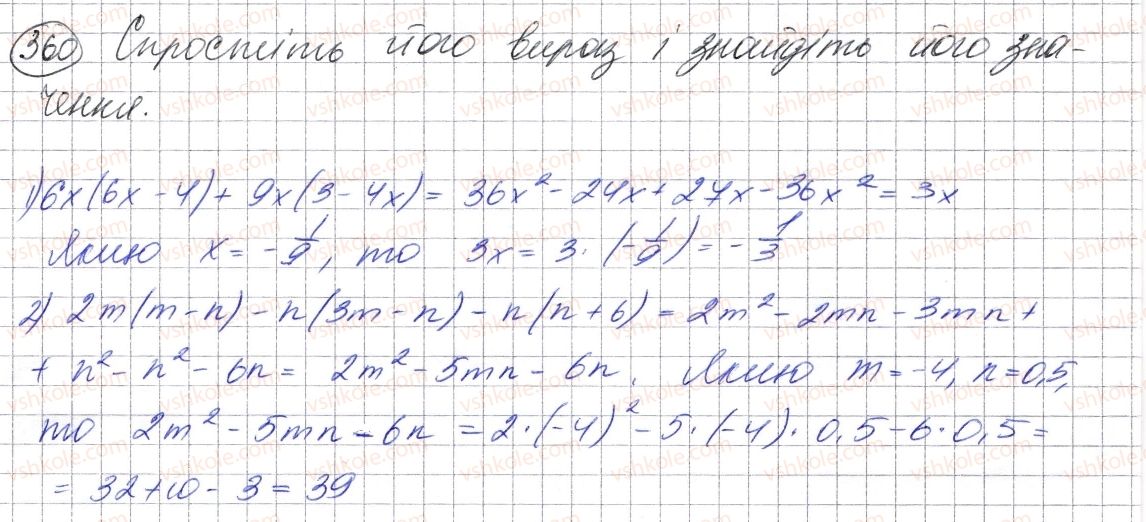 360 Спростіть його вираз і знайдіть його зна-
чення.
1) 6x(6x - 4) + 9x(3 - 4x) = 36x² - 24x + 27x - 36x² = 3x
Якщо x = - 1/9, то 3x = 3 · (- 1/9) = - 1/3
2) 2m(m - n) - n(3m - n) - n(n + 6) = 2m² - 2mn - 3mn +
+ n² - n² - 6n = 2m² - 5mn - 6n. Якщо m = -4, n = 0,5,
то 2m² - 5mn - 6n = 2 · (-4)² - 5 · (-4) · 0,5 - 6 · 0,5 =
= 32 + 10 - 3 = 39